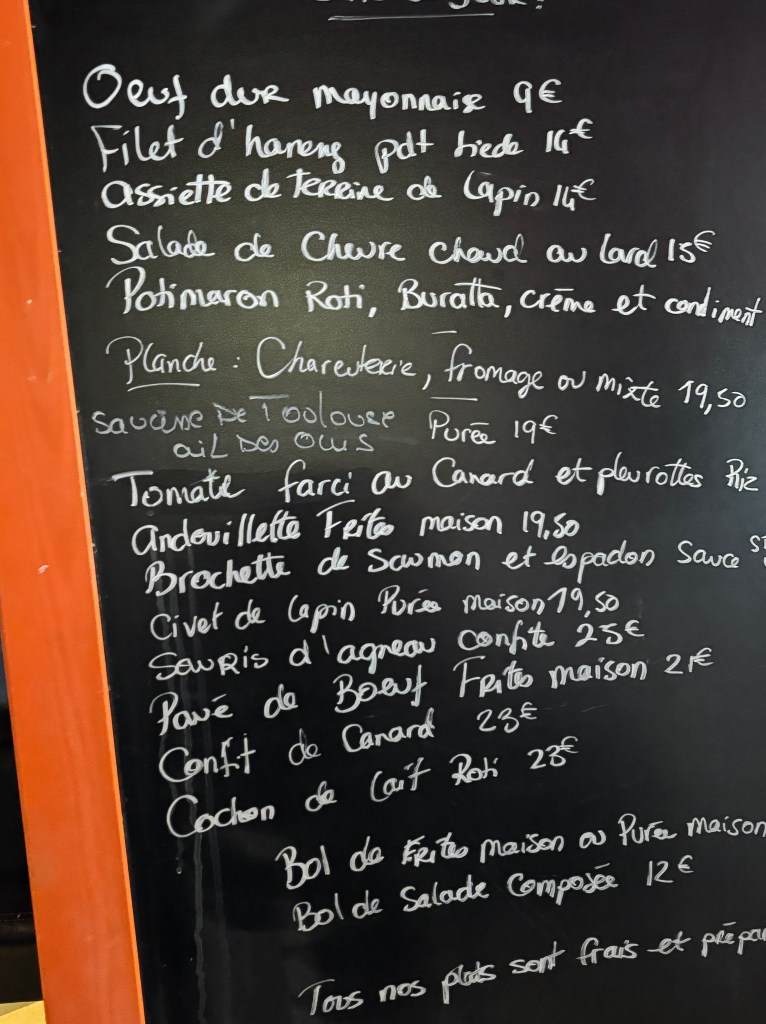 Oeuf dur mayonnaise 9€
Filet d'hareng pdt tiede 14€
Assiette de terrine de lapin 14€
Salade de Chevre chaud au lard 15€
Potimaron Roti, Buratta, crème et condiment
Planche : Charcuterie, fromage ou mixte 19,50
Saucisse de Toulouse
ail des ours Purée 19€
Tomate farci au Canard et pleurottes Riz
Andouillette Frites maison 19,50
Brochette de Saumon et espadon Sauce
Civet de lapin Purée maison 19,50
Souris d'agneau confite 25€
Pavé de Boeuf Frites maison 21€
Confit de Canard 23€
Cochon de lait Roti 23€
Bol de Frites maison ou Purée maison
Bol de Salade Composée 12€
Tous nos plats sont frais et